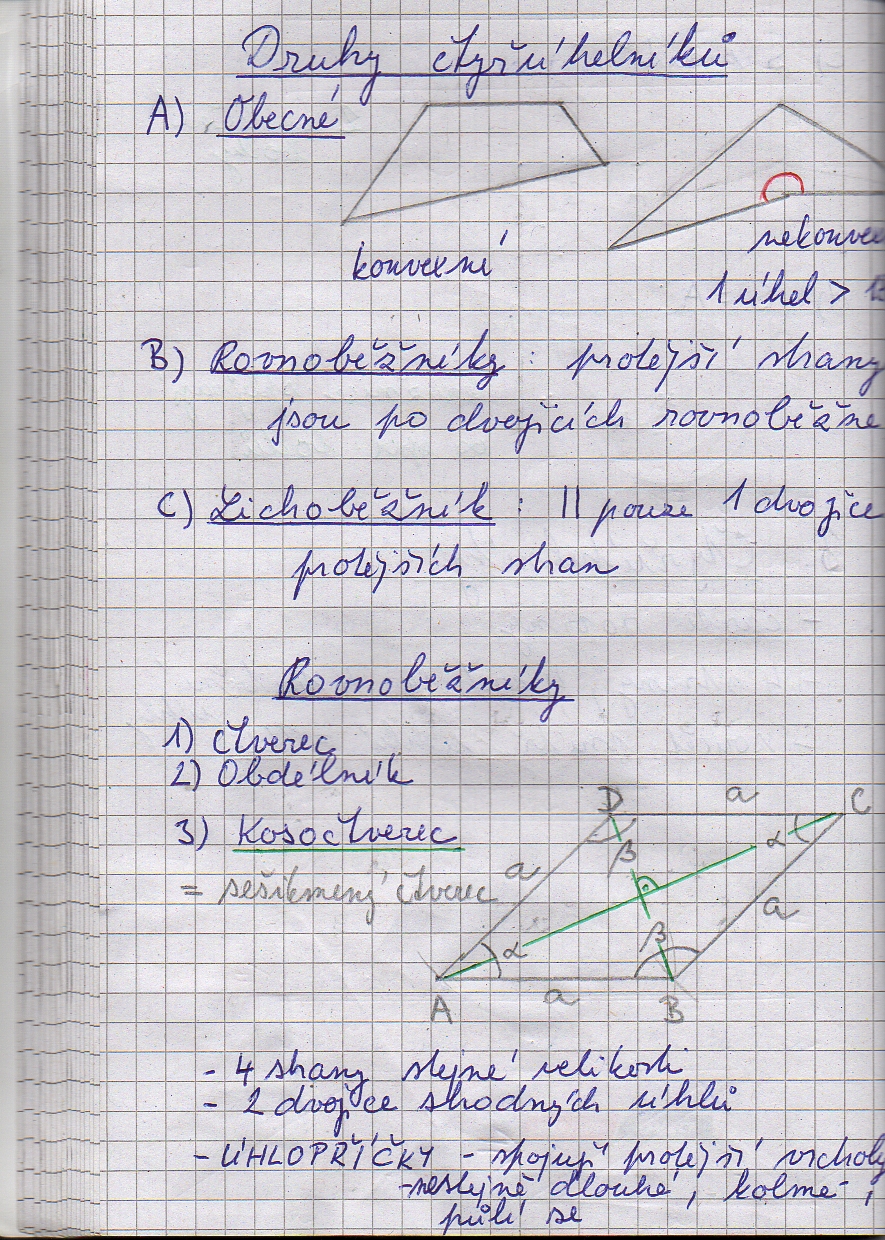 Druhy čtyřúhelníků
A) Obecné
konvexní
1 úhel >
B) Rovnoběžníky : protější strany
jsou po dvojicích rovnoběžné
C) Lichoběžník : || pouze 1 dvojice
protějších stran
Rovnoběžníky
1) Čtverec
2) Obdélník
3) Kosočtverec
= sešikmený čtverec
D a C
a β α
a
α β
A a B
- 4 strany stejné velikosti
- 2 dvojice shodných úhlů
- ÚHLOPŘÍČKY - spojují protější vrcholy
- nestejně dlouhé, kolmé,
půlí se